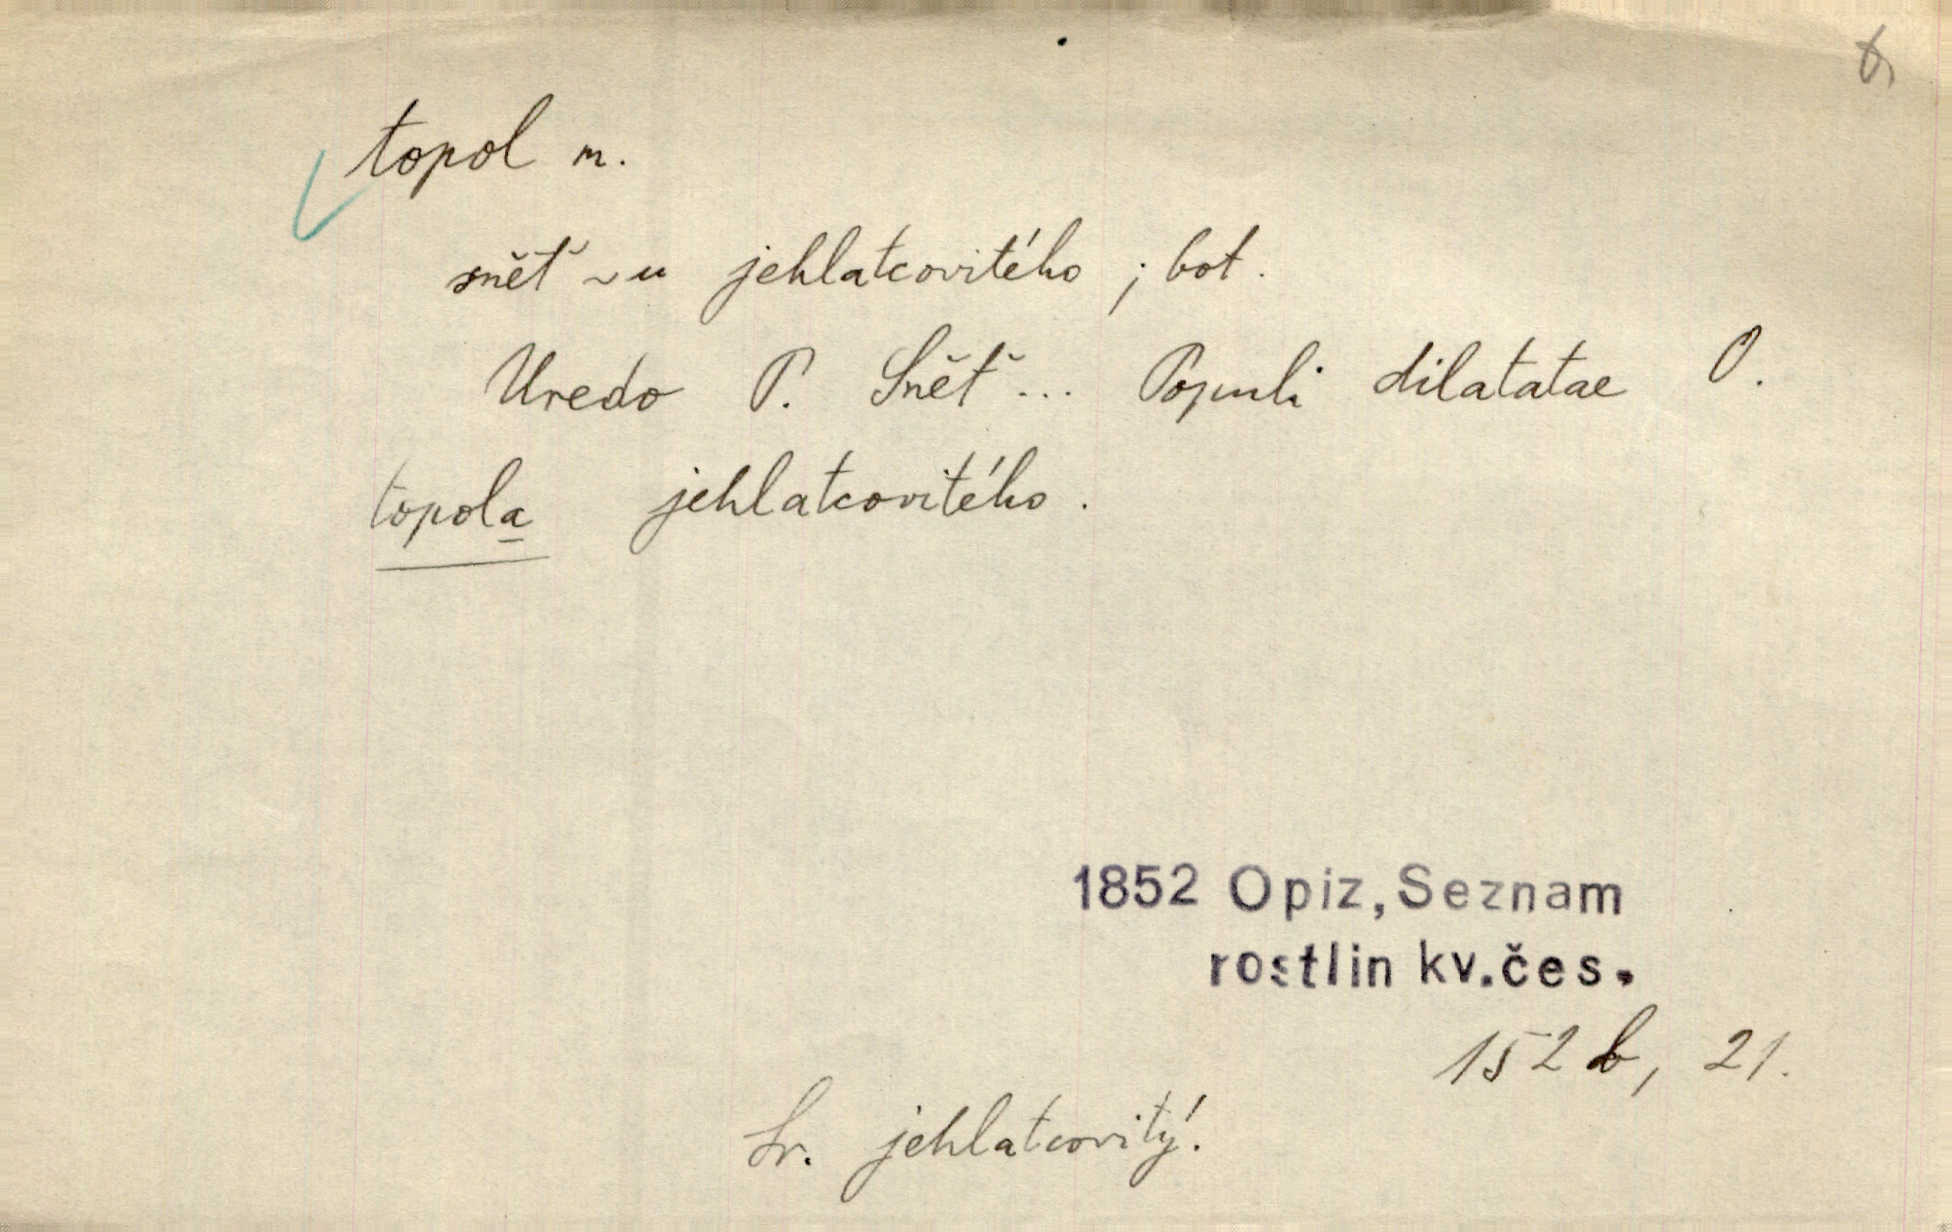 topol m.
sněť ~u jehlatcovitého ; bot.
Uredo P. Sněť ... Populi dilatatae O.
topola jehlatcovitého.
1852 Opiz, Seznam
rostlin kv.čes.
152 b, 21.
Sr. jehlatcovitý.